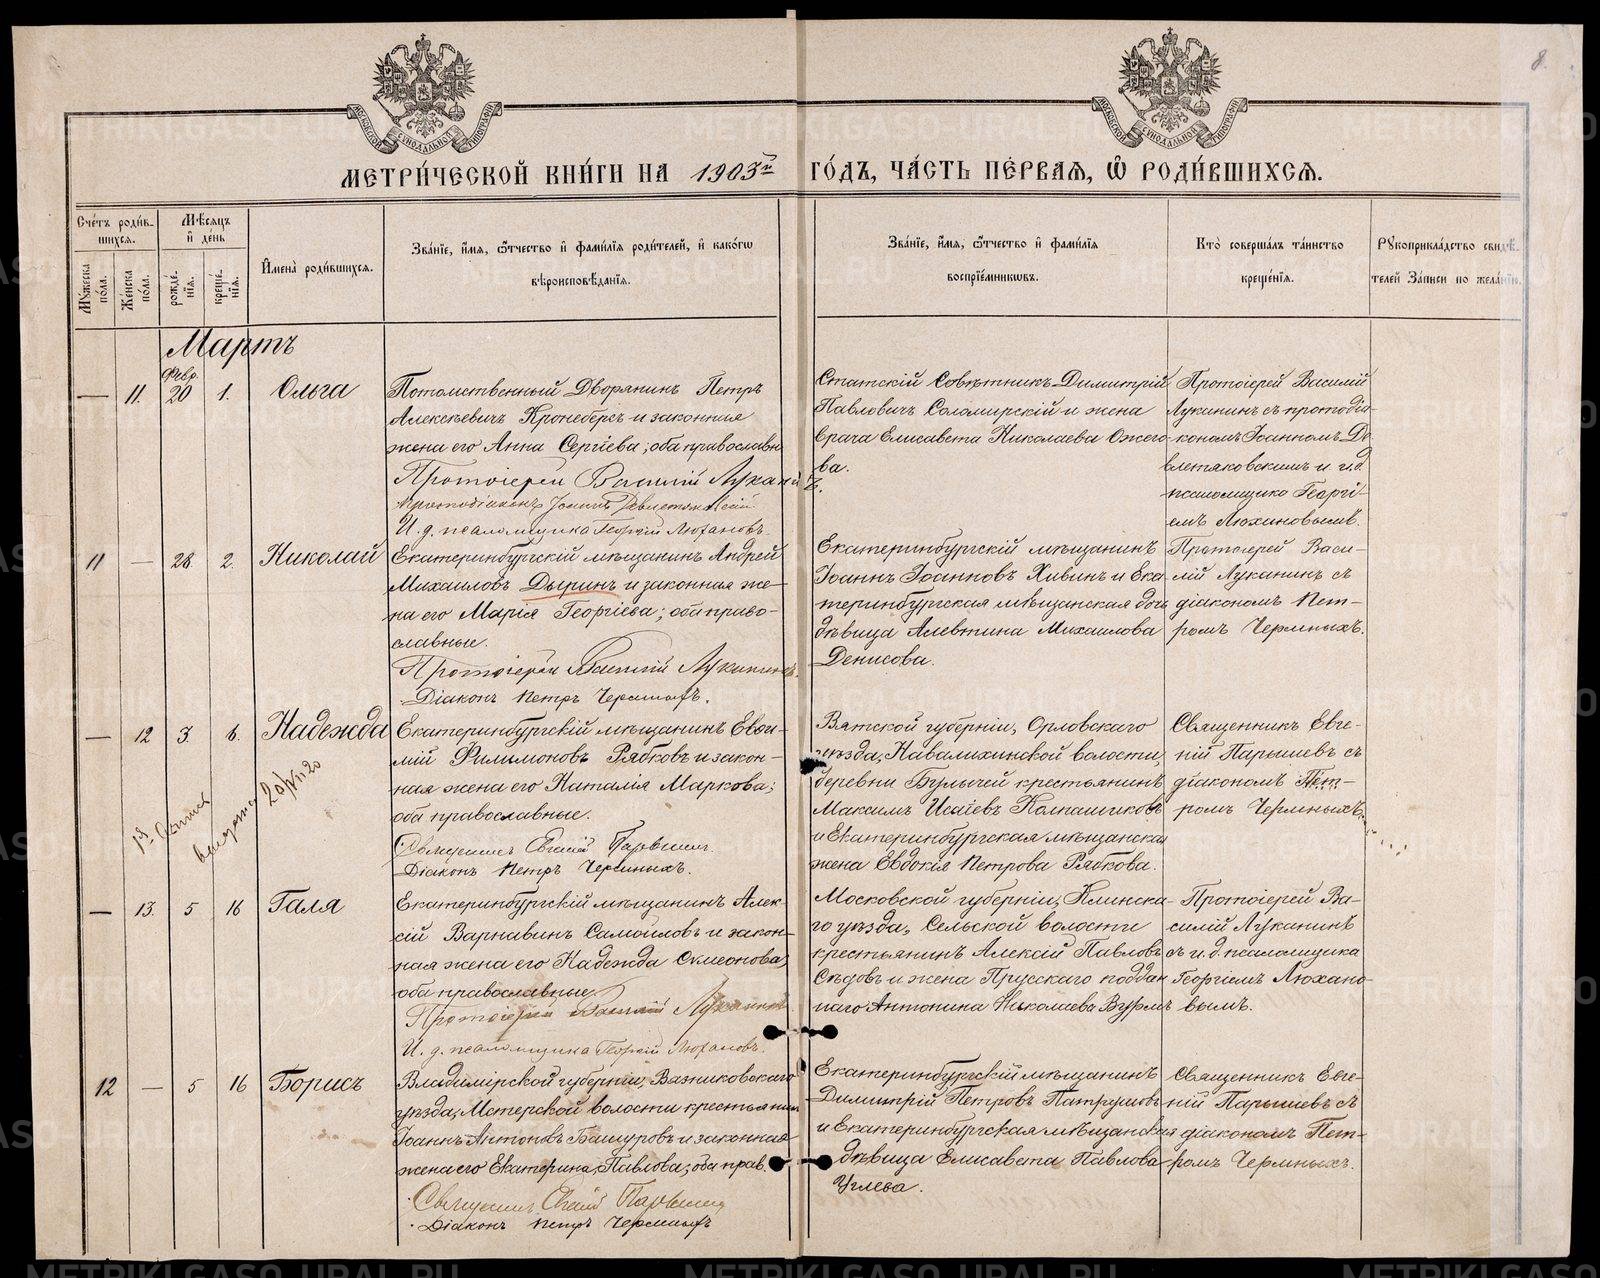 8.
МОСКОВСКОЙ СѴНОДАЛЬНОЙ ТИПОГРАФІИ
МОСКОВСКОЙ СѴНОДАЛЬНОЙ ТИПОГРАФІИ
МЕТРИ́ЧЕСКОЙ КНИ́ГИ НА 1903й ГО́ДЪ, ЧА́СТЬ ПЕ́РВАѦ, Ѡ РОДИ́ВШИХСѦ.
Сче́тъ роди́в-
шихсѧ.
Мꙋ́жеска по́ла.
Же́нска по́ла.
Мѣ́сѧцъ
и҆ де́нь
рожде́-
нїѧ.
креще́-
нїѧ.
И҆мена̀ роди́вшихсѧ.
Зва́нїе, и҆́мѧ, ѻ҆́тчество и҆ фами́лїѧ роди́телей, и҆ како́гѡ
вѣроисповѣ́данїѧ.
Зва́нїе, и҆́мѧ, ѻ҆́тчество и҆ фами́лїѧ
воспрїе́мникѡвъ.
Кто̀ соверша́лъ та́инство
креще́нїѧ.
Рꙋкоприкла́дство свидѣ́-
телей за́писи по жела́нїю.
Мартъ
— 11. Февр. 20 1. Ольга
Потомственный Дворянинъ Петръ
Алексѣевичъ Кронебергъ и законная
жена его Анна Сергіева; оба православны
Протоіерей Василій Луканинъ.
Протодіаконъ Іоаннъ
И. д. псаломщика Георгій Люхановъ.
Статскій Совѣтникъ Димитрій
Павловичъ Соломирскій и жена
врача Елисавета Николаева Ожего-
ва.
Протоіерей Василій
Луканинъ съ протодіа-
кономъ Іоанномъ
и и.д.
псаломщика Георгі-
емъ Люхановымъ.
11 — 28. 2. Николай
Екатеринбургскій мѣщанинъ Андрей
Михаиловъ Дыринъ и законная же-
на его Марія Георгіева; оба право-
славные.
Протоіерей Василій Луканинъ.
Діаконъ Петръ Чермныхъ.
Екатеринбургскій мѣщанинъ
Іоаннъ Іоанновъ Хивинъ и Ека-
теринбургская мѣщанская дочь
дѣвица Алевтина Михаилова
Денисова.
Протоіерей Васи-
лій Луканинъ съ
діакономъ Пет-
ромъ Чермныхъ.
— 12 3. 6. Надежда
Екатеринбургскій мѣщанинъ Евѳи-
мій Филимоновъ Рябковъ и закон-
ная жена его Наталія Маркова;
оба православные.
Священникъ Евгеній Парышевъ.
Діаконъ Петръ Чермныхъ.
Вятской губерніи, Орловскаго
уѣзда, Навалихинской волости,
деревни Булычей крестьянинъ
Максимъ Исаіевъ Колпашиковъ
и Екатеринбургская мѣщанская
жена Евдокія Петрова Рябкова.
Священникъ Евге-
ній Парышевъ съ
діакономъ Пет-
ромъ Чермныхъ.
20/VII 20
— 13. 5 16 Галя
Екатеринбургскій мѣщанинъ Алек-
сій Варнавинъ Самойловъ и закон-
ная жена его Надежда Симеонова;
оба православные.
Протоіерей Василій Луканинъ
И. д. псаломщика Георгій Люхановъ.
Московской губерніи, Клинска-
го уѣзда, Сельской волости
крестьянинъ Алексій Павловъ
Сѣдовъ и жена Прусскаго поддан-
наго Антонина Николаева Вурмъ
Протоіерей Ва-
силій Луканинъ
съ и.д. псаломщика
Георгіемъ Люхано-
вымъ.
12 — 5 16 Борисъ
Владимірской губерніи, Вязниковскаго
уѣзда, Мстерской волости крестьянинъ
Іоаннъ Антоновъ Башуровъ и законная
жена его Екатерина Павлова; оба прав.
Священникъ Евгеній Парышевъ
Діаконъ Петръ Чермныхъ
Екатеринбургскій мѣщанинъ
Димитрій Петровъ Патрушовъ
и Екатеринбургская мѣщанская
дѣвица Елисавета Павлова
Углева.
Священникъ Евге-
ній Парышевъ съ
діакономъ Пет-
ромъ Чермныхъ.
METRIKI.GASO-URAL.RU